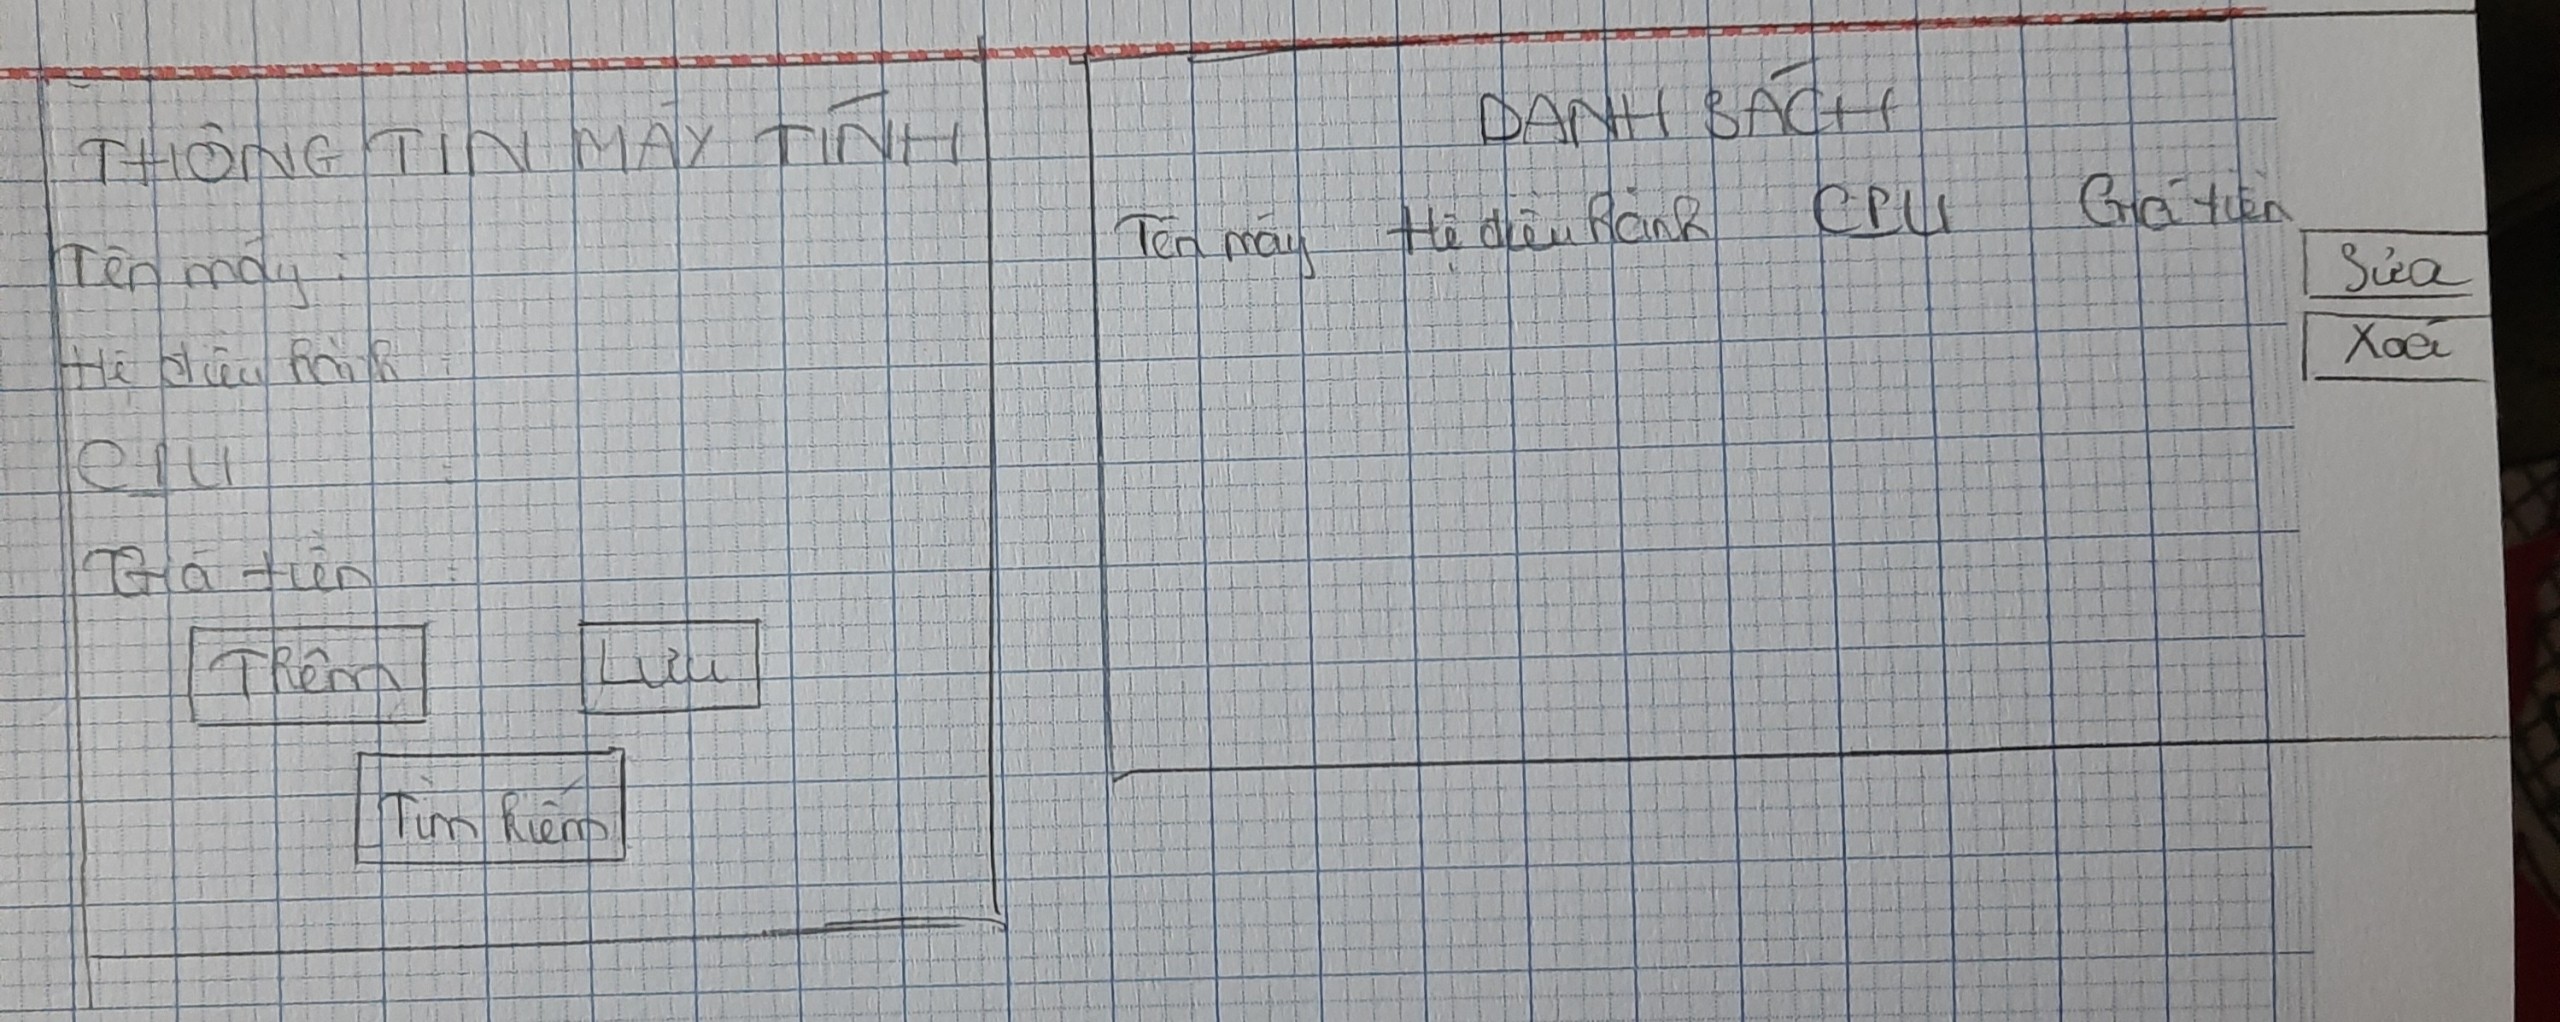 THÔNG TIN MÁY TÍNH
Tên máy :
Hệ điều hành :
CPU :
Giá tiền :
Thêm
Lưu
Tìm kiếm
DANH SÁCH
Tên máy Hệ điều hành CPU Giá tiền
Sửa
Xoá